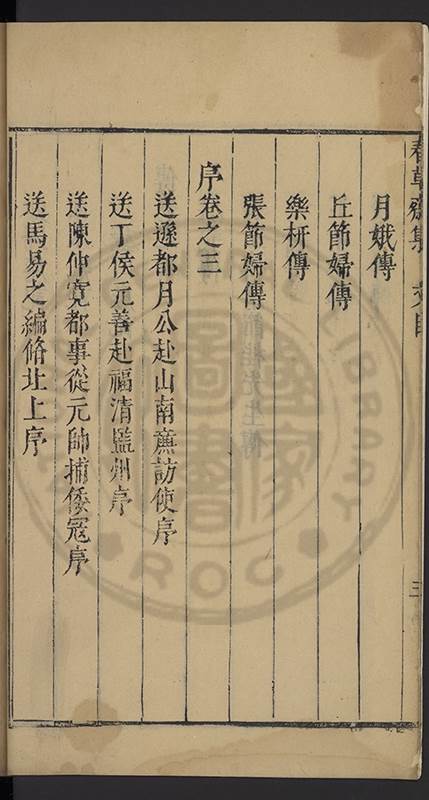 春草齋集 文目
三
月娥傳
丘節婦傳
樂枅傳
張節婦傳
序卷之三
送遜都月公赴山南廉訪使序
送丁侯元善赴福清監州序
送陳仲寛都事從元帥捕倭冦序
送馬易之編脩北上序
ROC